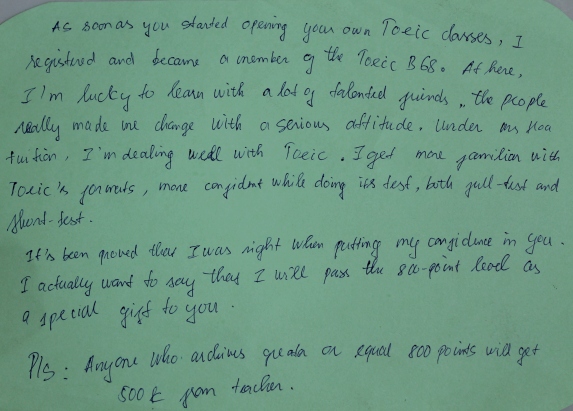 As soon as you started opening your own Toeic classes, I
registered and became a member of the Toeic B68. At here,
I'm lucky to learn with a lot of talented friends, the people
really made me change with a serious attitude. Under ms Hoa
tuition, I'm dealing well with Toeic. I get more familiar with
Toeic's formats, more confident while doing its test, both full-test and
short-test.
It's been proved that I was right when putting my confidence in you.
I actually want to say that I will pass the 800-point level as
a special gift to you.
P/s: Anyone who archives greater or equal 800 points will get
500k from teacher.